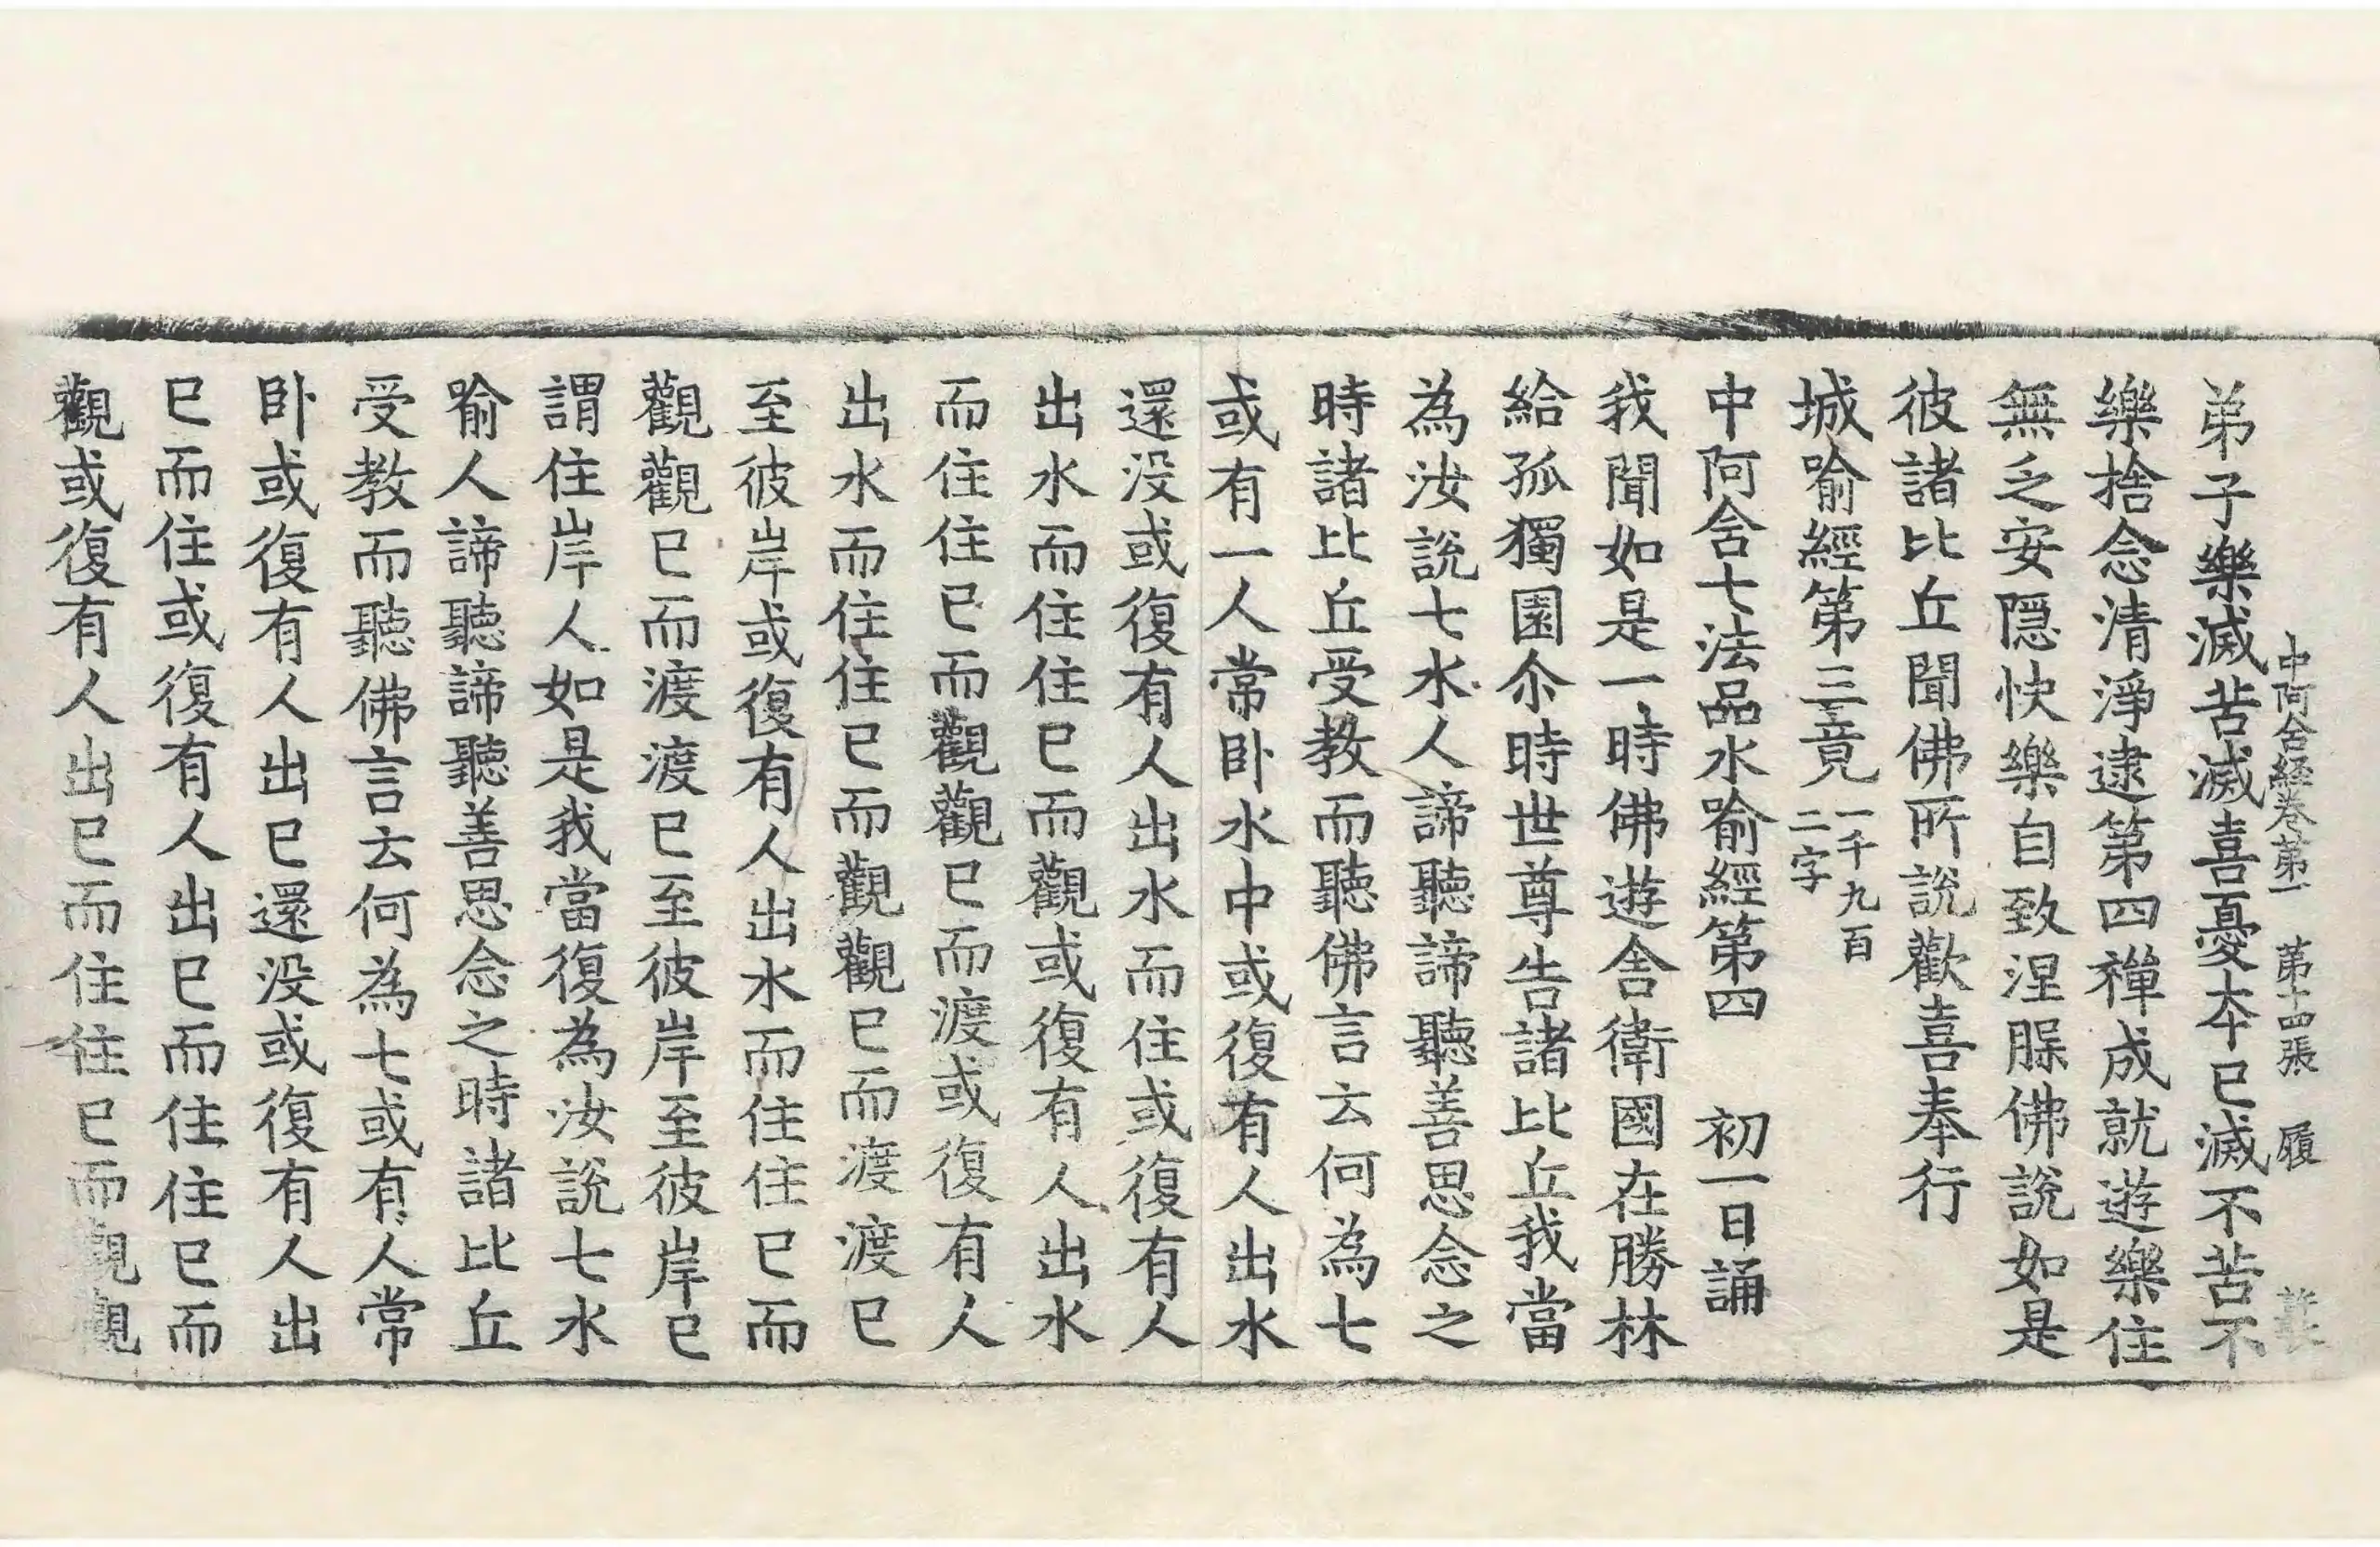 中阿含経卷第一 第十四張 履
弟子樂滅苦滅喜憂本已滅不苦不
樂捨念清淨逮第四禪成就遊樂住
無乏安隱快樂自致涅脲佛說如是
彼諸比丘聞佛所說歡喜奉行
城喻經第三竟 一千九百
二字
中阿含七法品水喻經第四 初一日誦
我聞如是一時佛遊舍衛國在勝林
給孤獨園尒時世尊告諸比丘我當
為汝說七水人諦聽諦聽善思念之
時諸比丘受教而聽佛言云何為七
或有一人常卧水中或復有人出水
還没或復有人出水而住或復有人
出水而住住已而觀或復有人出水
而住住已而觀觀已而渡或復有人
出水而住住已而觀觀已而渡渡已
至彼岸或復有人出水而住住已而
觀觀已而渡渡已至彼岸至彼岸已
謂住岸人如是我當復為汝說七水
喻人諦聽諦聽善思念之時諸比丘
受教而聽佛言云何為七或有人常
卧或復有人出已還没或復有人出
已而住或復有人出已而住住已而
觀或復有人出已而住住已而觀觀